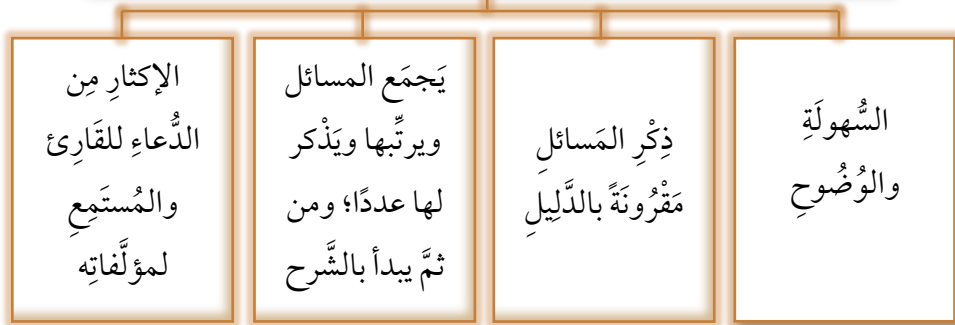 السُّهولَةِ
والوُضُوحِ
ذِكْرِ المَسائلِ
مَقْرُونَةً بالدَّلِيلِ
يَجمَع المسائل
ويرتِّبها ويَذْكر
لها عددًا؛ ومن
ثمَّ يبدأ بالشَّرح
الإكثارِ مِن
الدُّعاءِ للقَارِئ
والمُستَمِعِ
لمؤلَّفاتِه